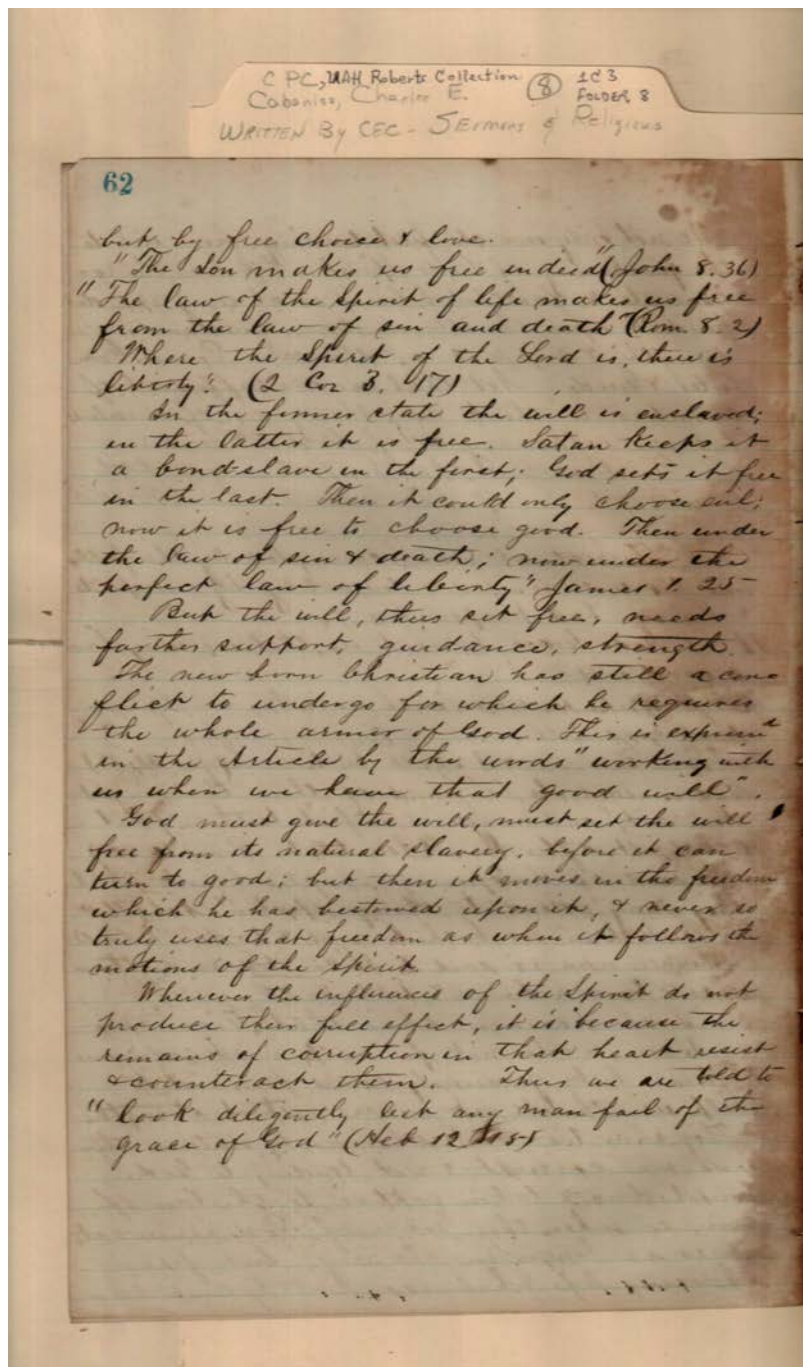 C PC, UAH Roberts Collection (8) 1C3
Cabaniss, Charles E. FOLDER 8
WRITTEN By CEC - SERMONS & Religious
62
but by free choice & love.
"The Son makes us free indeed" (John 8. 36)
"The law of the Spirit of life makes us free
from the law of sin and death" (Rom. 8. 2)
Where the Spirit of the Lord is, there is
liberty." (2 Cor 3. 17)
In the former state the will is enslaved;
in the latter it is free. Satan keeps it
a bond-slave in the first; God sets it free
in the last. Then it could only choose evil;
now it is free to choose good. Then under
the law of sin & death; now under the
perfect law of liberty" James 1. 25
But the will, thus set free, needs
farther support, guidance, strength.
The new born Christian has still a con
flict to undergo for which he requires
the whole armor of God. This is express'd
in the Article by the words "working with
us when we have that good will".
God must give the will, must set the will
free from its natural slavery, before it can
turn to good; but then it moves in the freedom
which he has bestowed upon it, & never so
truly uses that freedom as when it follows the
motions of the Spirit.
Whenever the influences of the Spirit do not
produce their full effect, it is because the
remains of corruption in that heart resist
& counteract them. Thus we are told to
"look diligently lest any man fail of the
grace of God" (Heb 12 15)